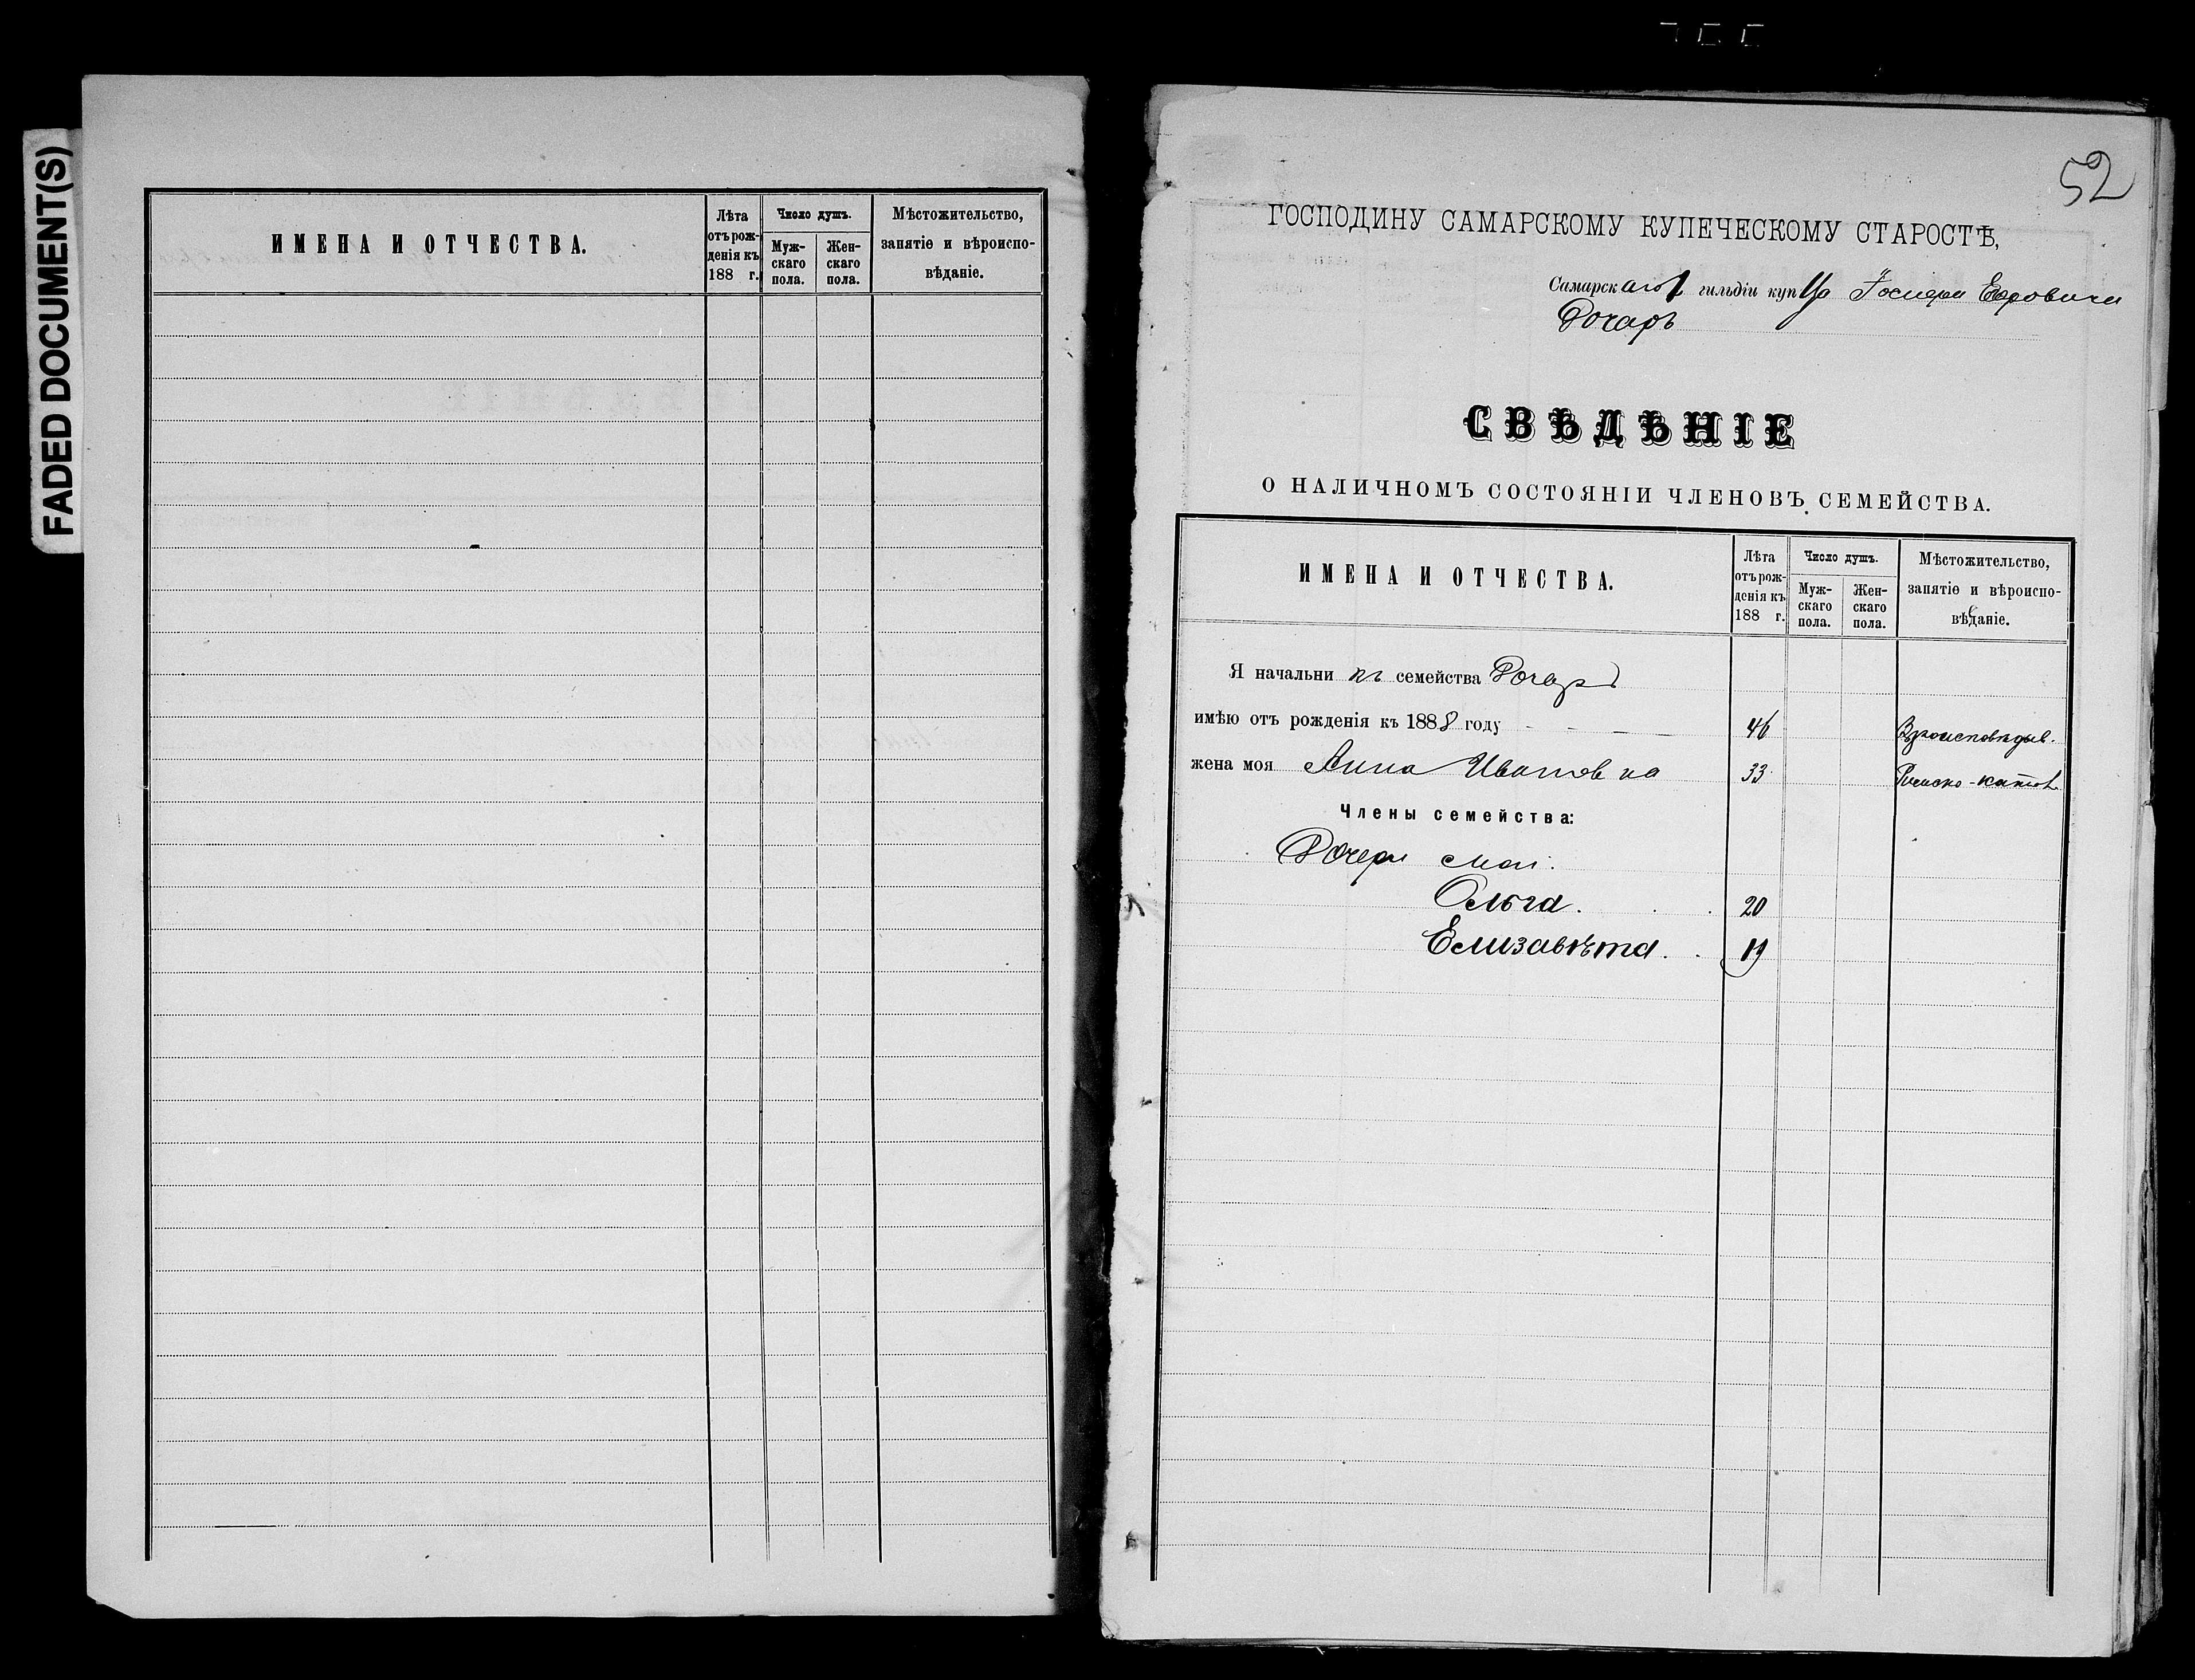 FADED DOCUMENT(S)
ИМЕНА И ОТЧЕСТВА.
Лѣта отъ рожденія къ 188 г.
Число душъ.
Мужскаго пола.
Женскаго пола.
Мѣстожительство, занятіе и вѣроисповѣданіе.
52
ГОСПОДИНУ САМАРСКОМУ КУПЕЧЕСКОМУ СТАРОСТѢ,
Самарскаго 1 гильдіи купца Іосифа Егоровича
СВѢДѢНІЕ
О НАЛИЧНОМЪ СОСТОЯНІИ ЧЛЕНОВЪ СЕМЕЙСТВА.
ИМЕНА И ОТЧЕСТВА.
Лѣта отъ рожденія къ 188 г.
Число душъ.
Мужскаго пола.
Женскаго пола.
Мѣстожительство, занятіе и вѣроисповѣданіе.
Я начальникъ семейства
имѣю отъ рожденія къ 1888 году 46 Вѣроисповѣдыв.
жена моя Анна Ивановна 33 Римско-катол.
Члены семейства:
Дочери мои:
Ольга. 20
Елизавѣта. 19